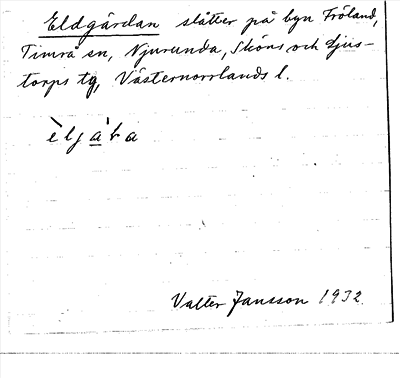 Eldgårdan slåtter på byn Fröland,
Timrå sn, Njurunda, Sköns och Ljus-
torps tg, Västernorrlands l.
Valter Jansson 1932.